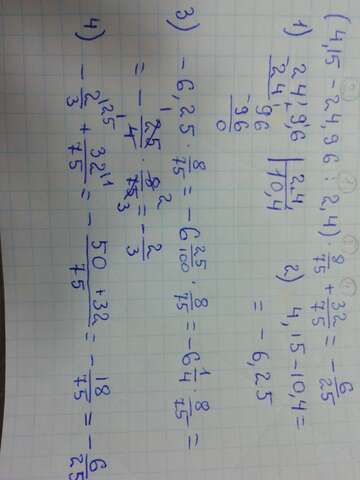 (4,15 - 24,96 : 2,4) · 8/75 + 32/75 = - 6/25
1) 24,9,6 | 2,4
24 10,4
96
- 96
0
2) 4,15 - 10,4 =
= - 6,25
3) - 6,25 · 8/75 = - 6 25/100 · 8/75 = - 6 1/4 · 8/75 =
= - 25/4 · 8/75 = - 2/3
4) - 2/3 + 32/75 = - 50 + 32/75 = - 18/75 = - 6/25